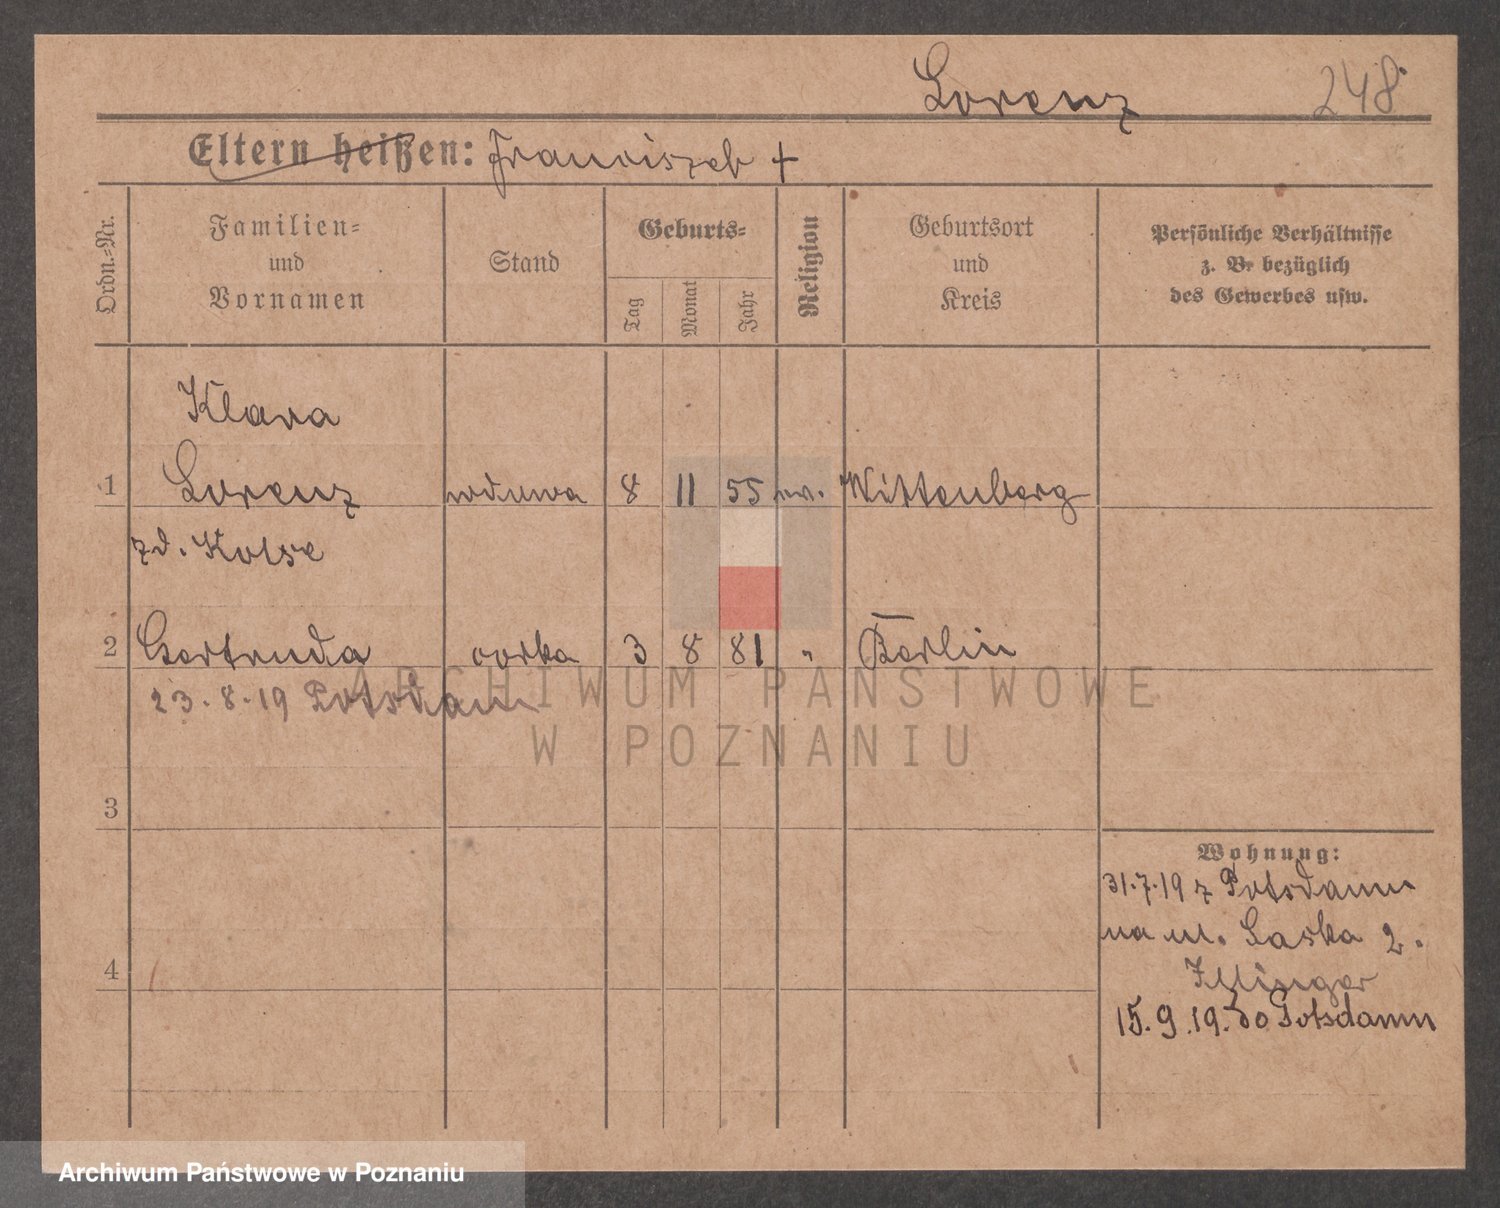 Lorenz
248
Eltern heißen: Franciszek +
Ordn.-Nr.
Familien-
und
Vornamen
Stand
Geburts-
Tag
Monat
Jahr
Religion
Geburtsort
und
Kreis
Persönliche Verhältnisse
z. B. bezüglich
des Gewerbes usw.
Klara
1 Lorenz wdowa 8 11 55 ew. Wittenberg
zd. Kolse
2 Gertruda córka 3 8 81 " Berlin
23.8.19 Potsdam
3
Wohnung:
31.7.19 z Potsdamu
na ul. Łąska 2.
4
Illinger
15.9.19. do Potsdamu
ARCHIWUM PAŃSTWOWE
W POZNANIU
Archiwum Państwowe w Poznaniu